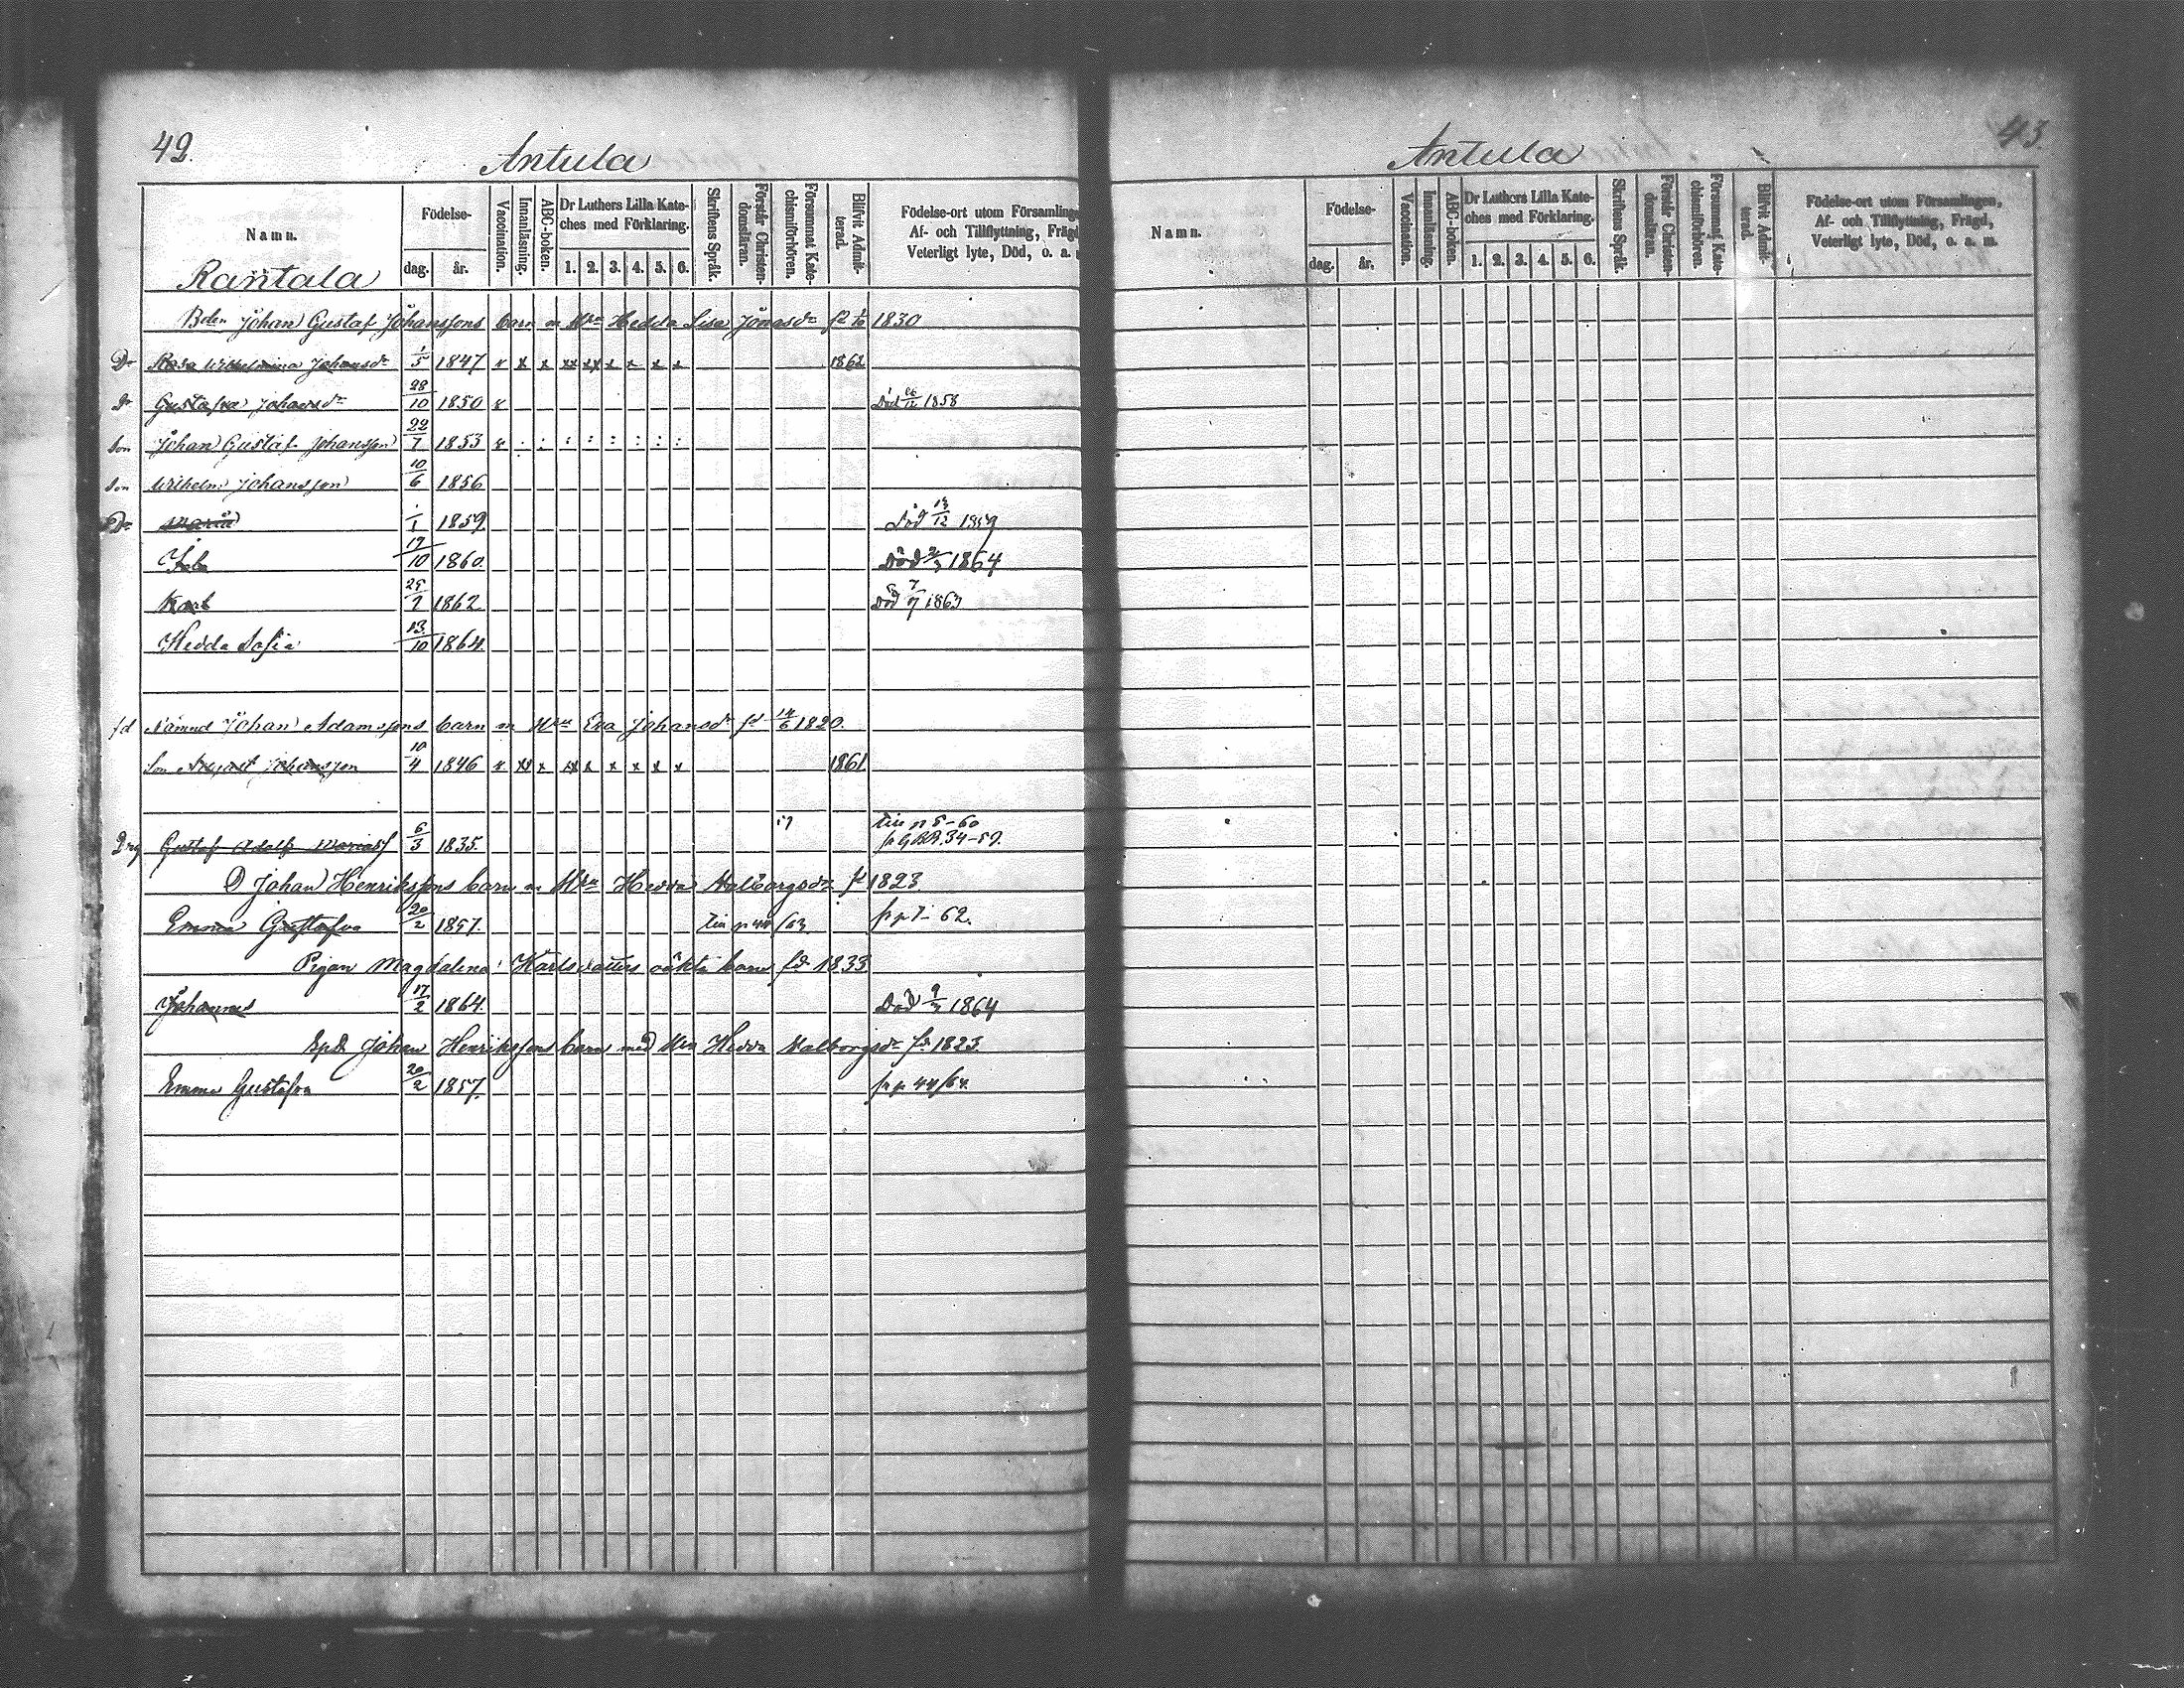 42.
Antula
Namn.
Födelse-
dag. år.
Vaccination.
Innanläsning.
ABC-boken.
Dr Luthers Lilla Kate-
ches med Förklaring.
1. 2. 3. 4. 5. 6.
Skriftens Språk.
Förstår Christen-
domsläran.
Försummat Kate-
chismiförhören.
Blifvit Admit-
terad.
Födelse-ort utom Församlinge
Af- och Tillflyttning, Frägd
Veterligt lyte, Död, o. a.
Rantala
Johan Gustaf Johanssons barn m Hedda Lisa Jonasdr 1830
Dr Wilhelmina Johansdr 1/5 1847 x x x xx xx x x x x 1862
Dr Gustafva Johansdr 28/10 1850 x Död 1858
Son Johan Gustaf Johansson 22/7 1853 x : : : : : : : :
Son Wilhelm Johansson 10/6 1856
Dr Maria 1/1 1859 Död 13/12 1859
17/10 1860. Död 1864
Karl 1862 Död 1863
Hedda Sofia 13/10 1864.
fd Johan Adamssons barn m Eva Johansdr fd 14/6 1820.
Son Johansson 10/4 1846 x xx x xx x x x x x 1861
Drg Gustaf Adolf Mariasf 6/3 1835. 57 tin p 5-60
34-57.
D Johan Henrikssons barn m Hedda Walborgsdr fd 1823
Emma Gustafva 20/2 1857. tin p /63 fr p 62.
Pigan Magdalena Karlsdotters oäkta barn fd 1833
Johannes 17/2 1864. Död 9/3 1864
Johan Henrikssons barn med Hedda Walborgsdr fd 1823.
Emma Gustafva 20/2 1857. fr p 44/64.
43.
Antula
Namn.
Födelse-
dag. år.
Vaccination.
Innanläsning.
ABC-boken.
Dr Luthers Lilla Kate-
ches med Förklaring.
1. 2. 3. 4. 5. 6.
Skriftens Språk.
Förstår Christen-
domsläran.
Försummat Kate-
chismiförhören.
Blifvit Admit-
terad.
Födelse-ort utom Församlingen,
Af- och Tillflyttning, Frägd,
Veterligt lyte, Död, o. a. m.